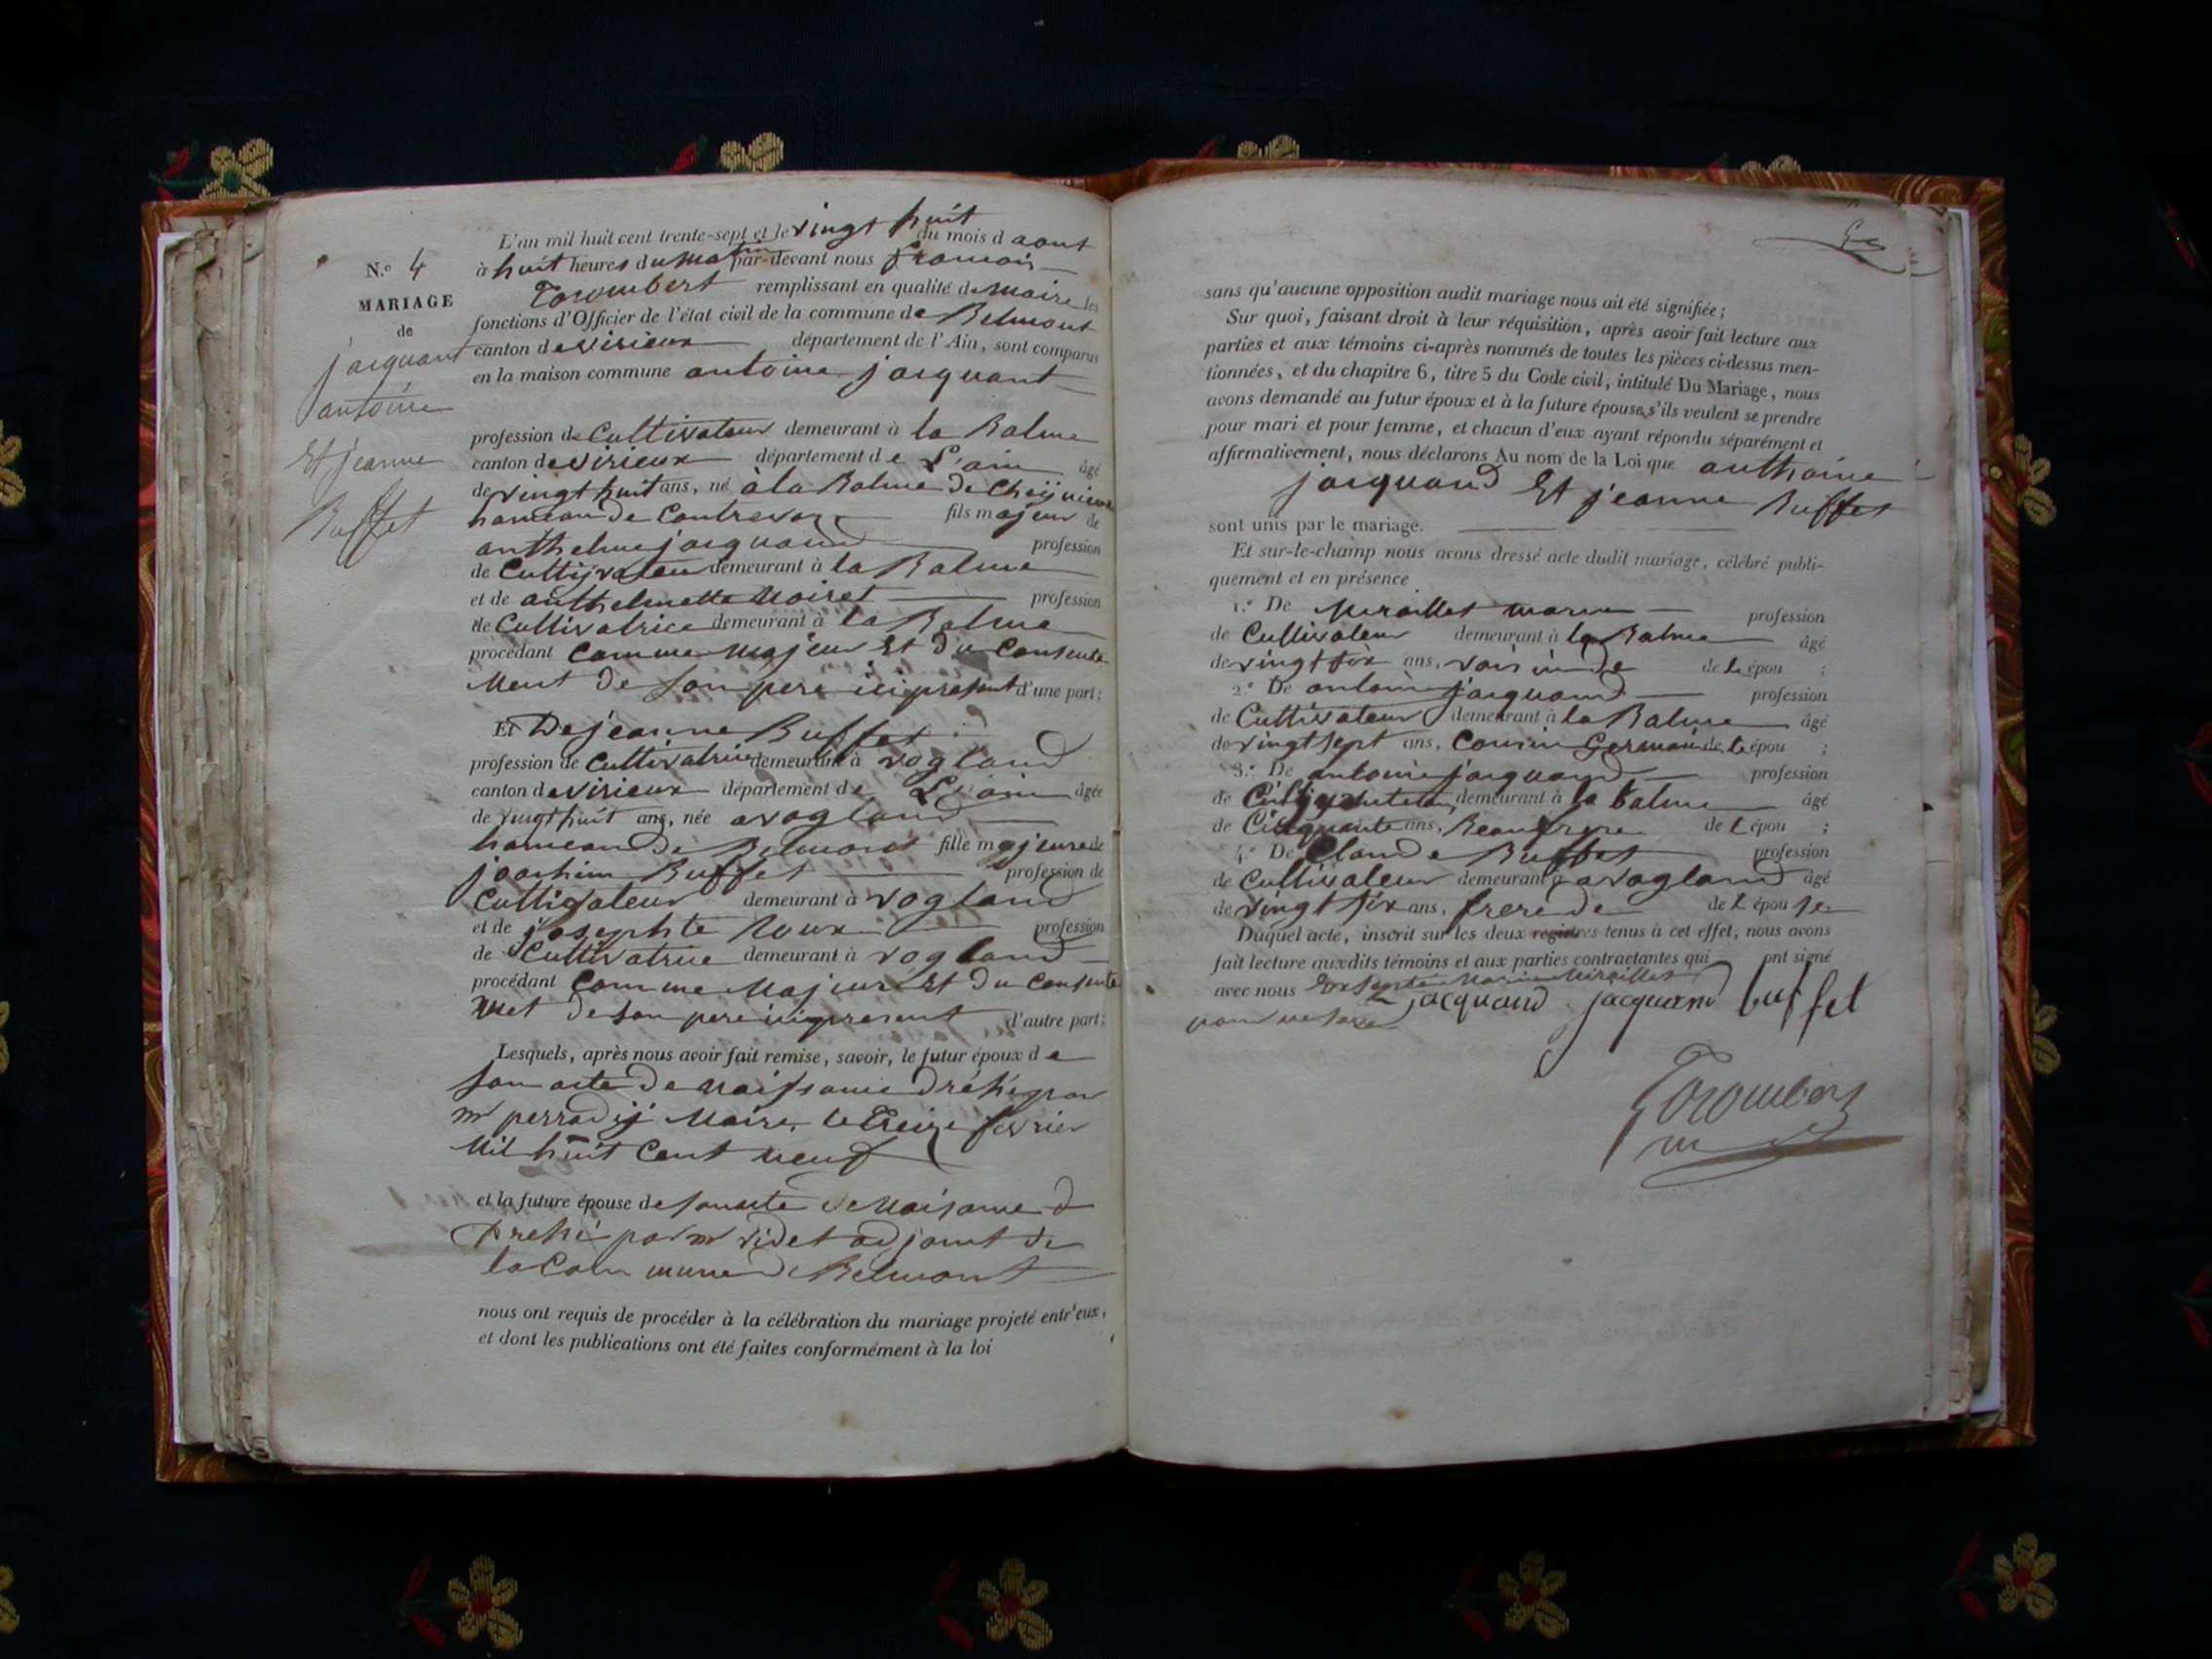 N.o 4
MARIAGE
de
jacquant
antoine
Et jeanne
Buffet
L'an mil huit cent trente-sept et le vingt huit du mois d aout
à huit heures du matin par-devant nous francois
Torombert remplissant en qualité de maire les
fonctions d'Officier de l'état civil de la commune de Belmont
canton de virieux département de l'Ain, sont comparus
en la maison commune antoine jacquant
profession de Cultivateur demeurant à la Balme
canton de virieux département de L'ain âgé
de vingt huit ans, né à la Balme de
hameau de Contrevoz fils majeur de
anthelme jacquand profession
de Cultivateur demeurant à la Balme
et de anthelmette Moiret profession
de Cultivatrice demeurant à la Balme
procédant Comme majeur Et du Consente
ment de son pere ici present d'une part;
Et De jeanne Buffet
profession de Cultivatrice demeurant à vogland
canton de virieux département de L'ain âgée
de vingt huit ans, née a vogland
hameau de Belmont fille majeure de
joachim Buffet profession de
Cultivateur demeurant à vogland
et de josephte Roux profession
de Cultivatrice demeurant à vogland
procédant Comme Majeure Et du Consente
met de son pere ici present d'autre part;
Lesquels, après nous avoir fait remise, savoir, le futur époux de
son acte de naissance dressé par
mr perradij Maire, le Treize fevrier
Mil huit Cent neuf
et la future épouse de son acte de Naisance d
Dressé par mr videt adjoint de
la Commune de Belmont
nous ont requis de procéder à la célébration du mariage projeté entr'eux,
et dont les publications ont été faites conformément à la loi
sans qu'aucune opposition audit mariage nous ait été signifiée;
Sur quoi, faisant droit à leur réquisition, après avoir fait lecture aux
parties et aux témoins ci-après nommés de toutes les pièces ci-dessus men-
tionnées, et du chapitre 6, titre 5 du Code civil, intitulé Du Mariage, nous
avons demandé au futur époux et à la future épouse s'ils veulent se prendre
pour mari et pour femme, et chacun d'eux ayant répondu séparément et
affirmativement, nous déclarons Au nom de la Loi que anthoine
jacquand Et jeanne Buffet
sont unis par le mariage.
Et sur-le-champ nous avons dressé acte dudit mariage, célébré publi-
quement et en présence
1.o De profession
de Cultivateur demeurant à la Balme âgé
de vingt six ans, voisin de de L épou ;
2.o De antoine jacquand profession
de Cultivateur demeurant à la Balme âgé
de vingt sept ans, Cousin Germain de L épou ;
3.o De antoine jacquand profession
de demeurant à la balme âgé
de Cinquante ans, Beaufrere de L épou ;
4.o De Claude Buffet profession
de Cultivateur demeurant à a vogland âgé
de vingt six ans, frere de de L épou se
Duquel acte, inscrit sur les deux registres tenus à cet effet, nous avons
fait lecture auxdits témoins et aux parties contractantes qui ont signé
avec nous
jacquand jacquand buffet
Torombert
m